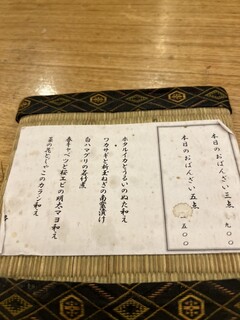 本日のおばんざい三点 九〇〇
本日のおばんざい五点 一五〇〇
ホタルイカとうるいのぬた和え
ワカサギと新玉ねぎの南蛮漬け
白ハマグリの若竹煮
春キャベツと桜エビの明太マヨ和え
菜の花としゃこのカラシ和え